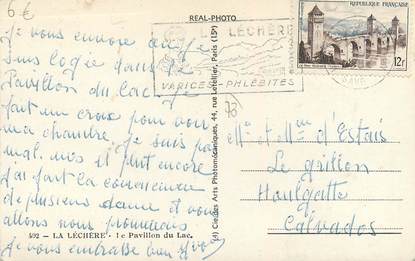 6€
REAL-PHOTO
je vous encore
suis logée dans le
Pavillon du lac. J'ai
fait un croix pour voir
ma chambre je suis pas
mal. mais il pleut encore
j'ai fait la connaissance
de plusieurs dame et nous
allons nous promener
je vous embrasse bien
492 - LA LÉCHÈRE - Le Pavillon du Lac.
(4) Cie des Arts Photomécaniques, 44, rue Letellier, Paris (15e)
LA LÉCHÈRE
VARICES-PHLÉBITES
REPUBLIQUE FRANÇAISE
12F
73
Mr et Mme d'Estais
Le grillon
Houlgatte
Calvados